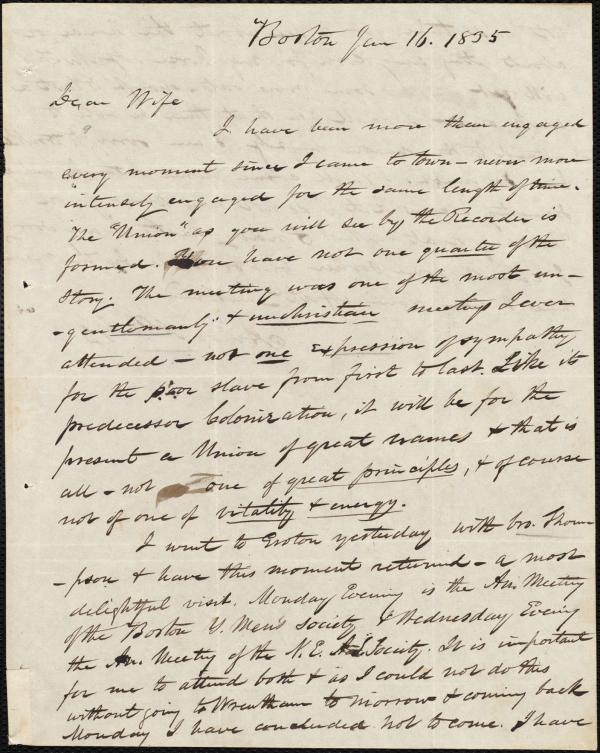 Boston Jan 16. 1835
Dear Wife
I have been more than engaged
every moment since I came to town - never more
intensely engaged for the same length of time.
The "Union" as you will see by the Recorder is
formed. You have not one quarter of the
story. The meeting was one of the most un-
-gentlemanly & unchristian meetings I ever
attended - not one expression of sympathy
for the poor slave from first to last. Like its
predecessor Colonization, it will be for the
present a Union of great names & that is
all - not one of great principles, & of course
not of one of vitality & energy.
I went to Groton yesterday with bro. Thom
-pson & have this moment returned - a most
delightful visit. Monday Evening is the An. Meeting
of the Boston Y. Mens Society & Wednesday Evening
the An. Meeting of the N. E. A S Society. It is important
for me to attend both & as I could not do this
without going to Wrentham tomorrow & coming back
Monday I have concluded not to come. I have